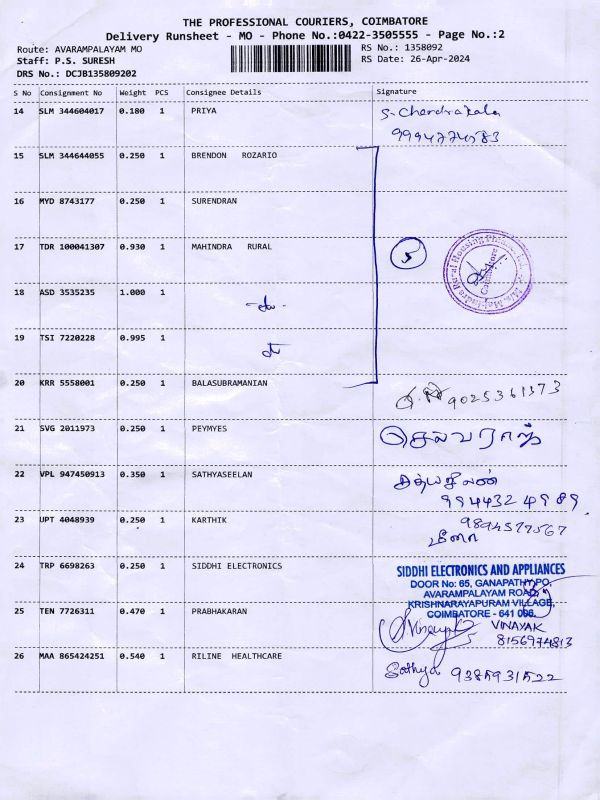 THE PROFESSIONAL COURIERS, COIMBATORE
Delivery Runsheet - MO - Phone No.:0422-3505555 - Page No.:2
Route: AVARAMPALAYAM MO
RS No.: 1358092
Staff: P.S. SURESH
RS Date: 26-Apr-2024
DRS No.: DCJB135809202
S No Consignment No Weight PCS Consignee Details Signature
14 SLM 344604017 0.180 1 PRIYA S. Chandrakala
9994774583
15 SLM 344644055 0.250 1 BRENDON ROZARIO
16 MYD 8743177 0.250 1 SURENDRAN
17 TDR 100041307 0.930 1 MAHINDRA RURAL 5
Coimbatore
18 ASD 3535235 1.000 1 -do-
19 TSI 7220228 0.995 1 do
20 KRR 5558001 0.250 1 BALASUBRAMANIAN 9025361373
21 SVG 2011973 0.250 1 PEYMYES செல்வராஜ்
22 VPL 947450913 0.350 1 SATHYASEELAN சத்யசீலன்
9944324989
23 UPT 4048939 0.250 1 KARTHIK 9894577567
24 TRP 6698263 0.250 1 SIDDHI ELECTRONICS SIDDHI ELECTRONICS AND APPLIANCES
DOOR No: 65, GANAPATHY PO,
AVARAMPALAYAM ROAD,
KRISHNARAYAPURAM VILLAGE,
COIMBATORE - 641 006.
25 TEN 7726311 0.470 1 PRABHAKARAN VINAYAK
8156974813
26 MAA 865424251 0.540 1 RILINE HEALTHCARE Sathya 9385931522